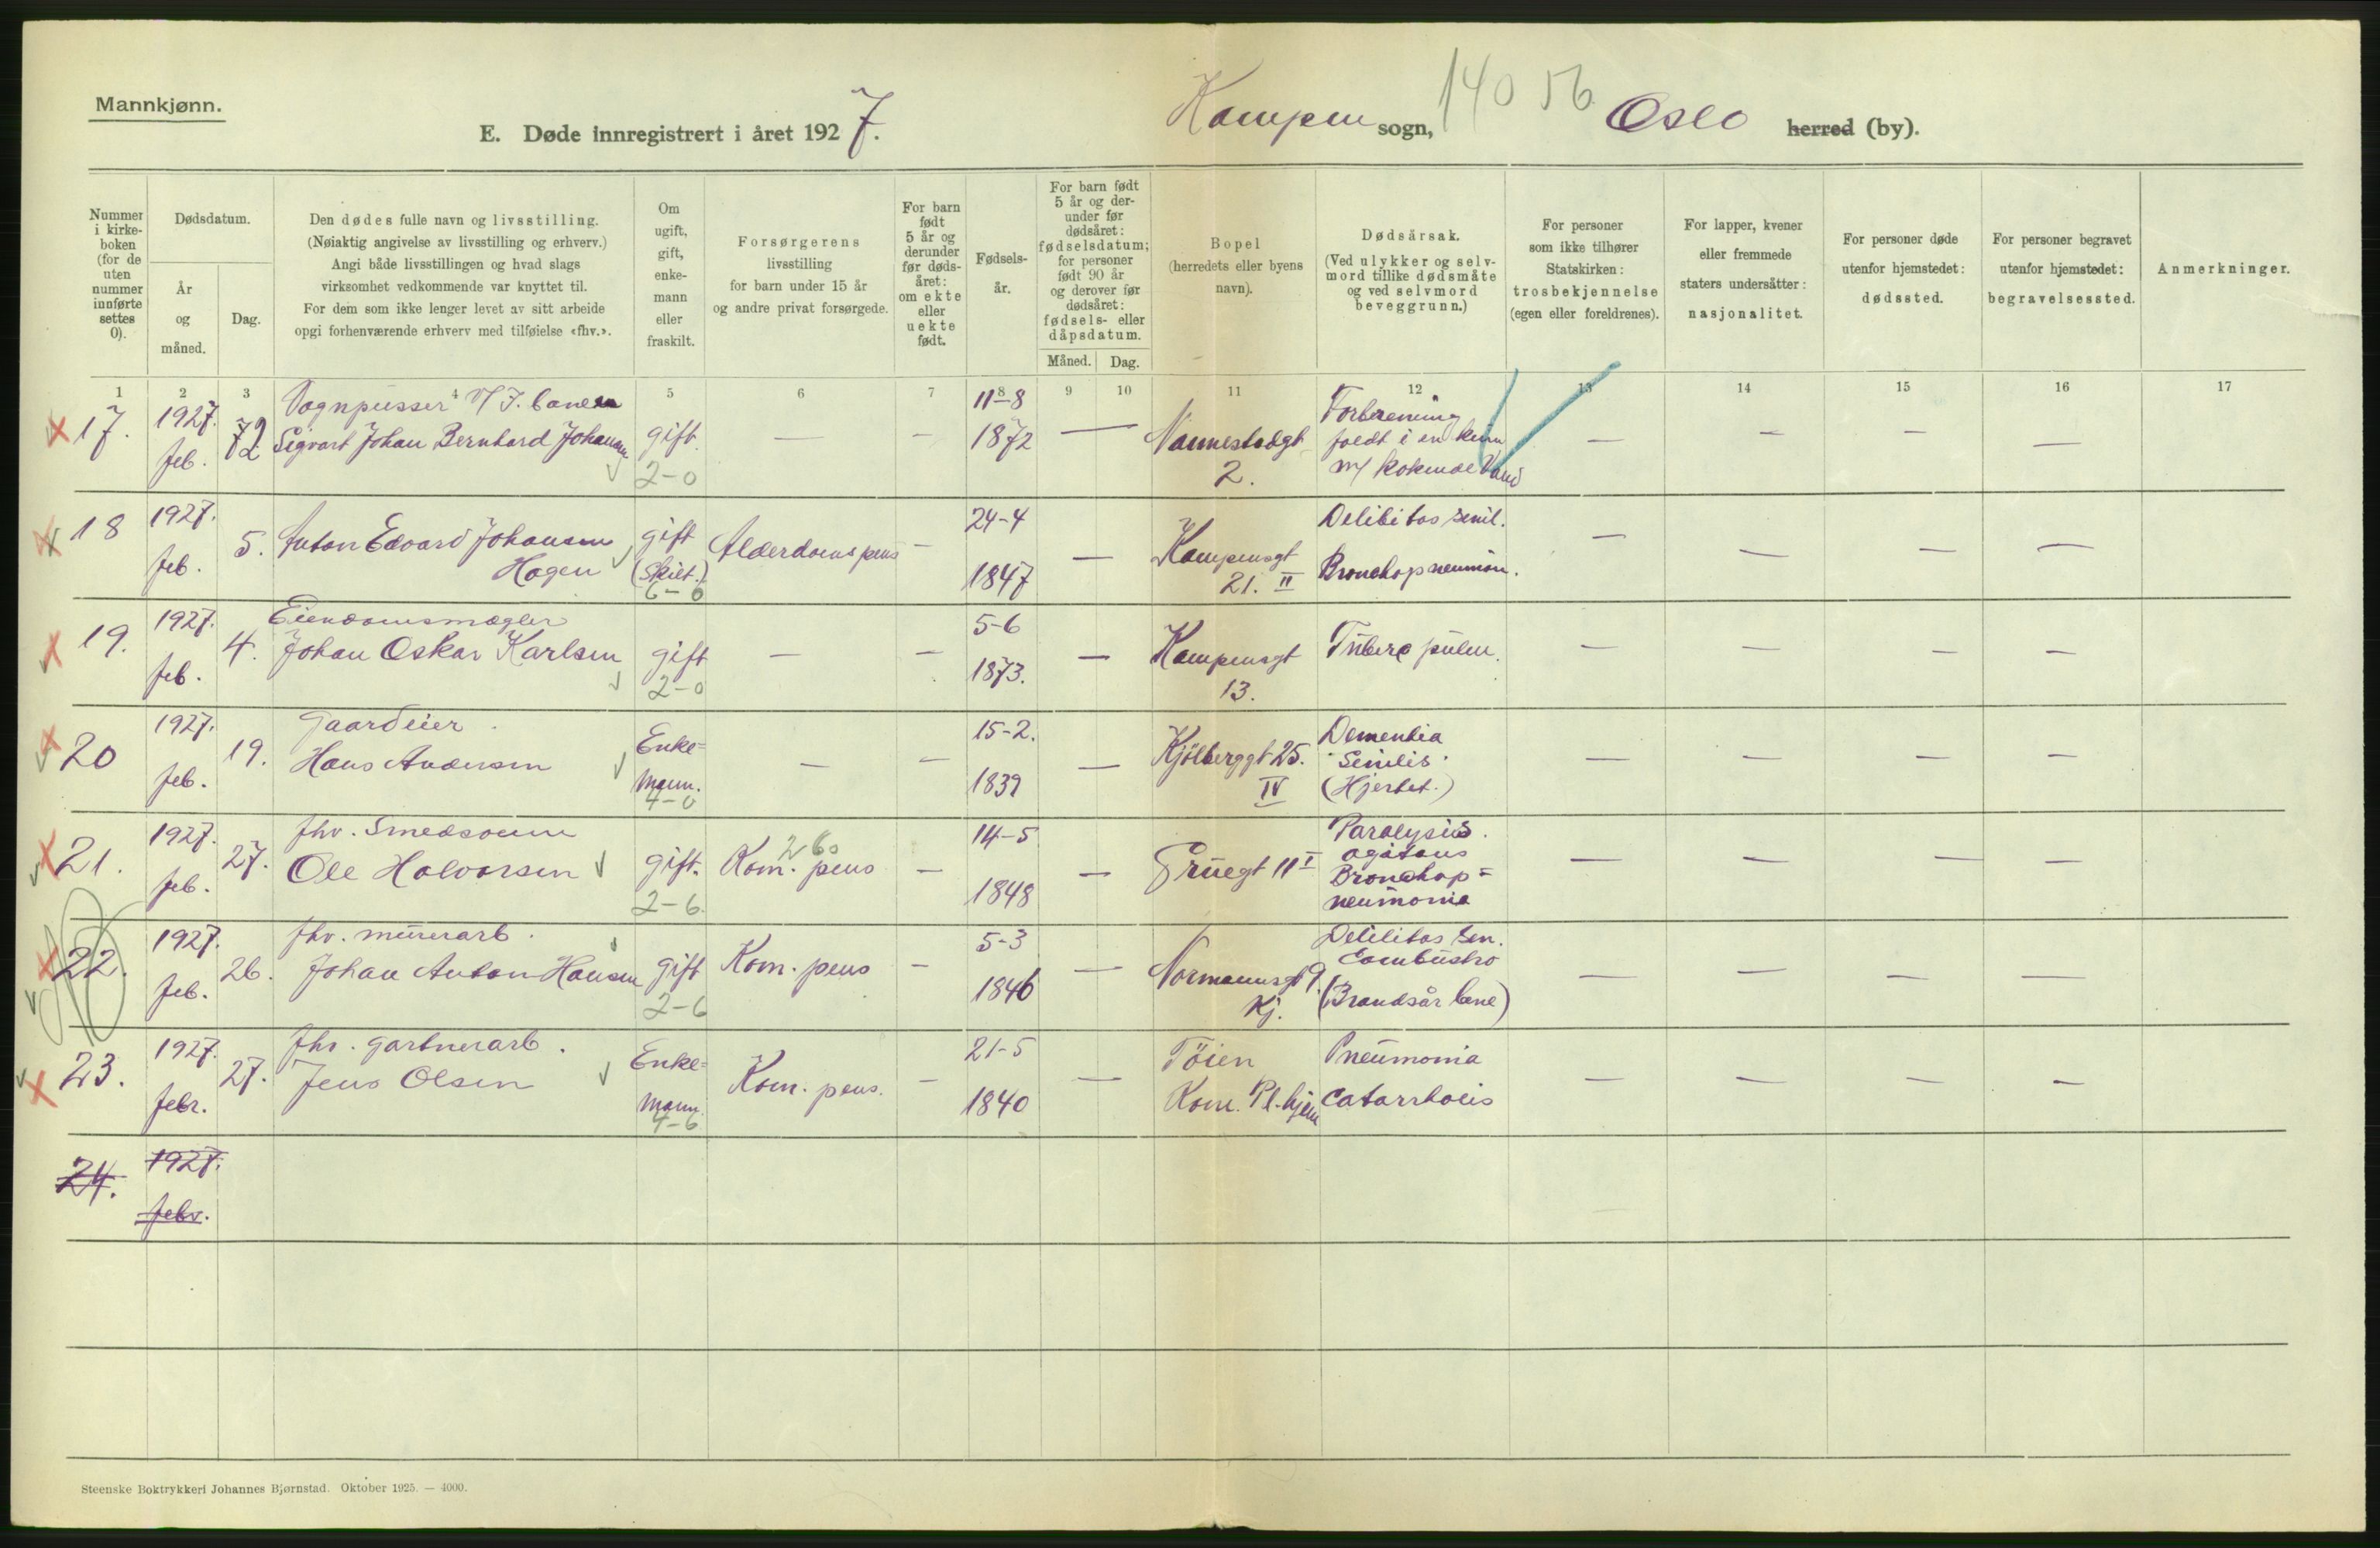 Mannkjønn.
E. Døde innregistrert i året 1927.
Kampen sogn,
14056
Oslo herred (by).
Nummer i kirke-boken (for de uten nummer innførte settes 0).
Dødsdatum.
År og måned.
Dag.
Den dødes fulle navn og livsstilling.
(Nøiaktig angivelse av livsstilling og erhverv.)
Angi både livsstillingen og hvad slags
virksomhet vedkommende var knyttet til.
For dem som ikke lenger levet av sitt arbeide
opgi forhenværende erhverv med tilføielse «fhv.».
Om ugift, gift, enke-mann eller fraskilt.
Forsørgerens
livsstilling
for barn under 15 år
og andre privat forsørgede.
For barn født 5 år og derunder før døds-året: om ekte eller uekte født.
Fødsels-år.
For barn født 5 år og der-under før dødsåret: fødselsdatum; for personer født 90 år og derover før dødsåret: fødsels- eller dåpsdatum.
Måned. Dag.
Bopel
(herredets eller byens
navn).
Dødsårsak.
(Ved ulykker og selv-
mord tillike dødsmåte
og ved selvmord
beveggrunn.)
For personer
som ikke tilhører
Statskirken:
trosbekjennelse
(egen eller foreldrenes).
For lapper, kvener
eller fremmede
staters undersåtter:
nasjonalitet.
For personer døde
utenfor hjemstedet:
dødssted.
For personer begravet
utenfor hjemstedet:
begravelsessted.
Anmerkninger.
1 2 3 4 5 6 7 8 9 10 11 12 13 14 15 16 17
17. 1927. feb.
Vognpusser
Sigvart Johan Bernhard Johansen
gift
2-0
— —
11-8
1872
—
Nannestadgt
2.
Forbrenning
faldt i en
m/ kokende Vand
— — — —
18 1927. feb. 5.
Anton Edvard Johansen
Hagen
gift
(skilt.)
6-6
Alderdoms pens
—
24-4
1847
—
Kampensgt
21. II
Delibitas senil.
Bronchopneumon.
— — — —
19. 1927. feb. 4.
Eiendomsmægler
Johan Oskar Karlsen
gift
2-0
— —
5-6
1873.
—
Kampensgt
13.
Tuberc pulm.
— — — —
20 1927. feb. 19.
Gaardeier
Hans Andersen
Enke=
mann.
4-0
— —
15-2.
1839
—
Kjölberggt 25.
IV
Dementia
Senilis
(Hjertet.)
— — — —
21. 1927. feb. 27.
fhv. Smedsvenn
Ole Halvorsen
gift.
2-6
Kom. pens
—
14-5
1848
—
Gruegt 11 I
Paralysis
agitans
Bronchop=
neumonia
— — — —
22. 1927. feb. 26.
fhv. murerarb.
Johan Anton Hansen
gift
2-6
Kom. pens
—
5-3
1846
—
Normannsgt 9.
Kj.
Delilitas sen.
Combustio
(Brandsår bene)
— — — —
23. 1927. febr. 27.
fhv. gartnerarb.
Jens Olsen
Enke=
mann.
4-6
Kom. pens.
—
21-5
1840
—
Töien
Kom. Pl-hjem
Pneumonia
Catarrhalis
— — — —
24. 1927. febr.
Steenske Boktrykkeri Johannes Bjørnstad. Oktober 1925. — 4000.